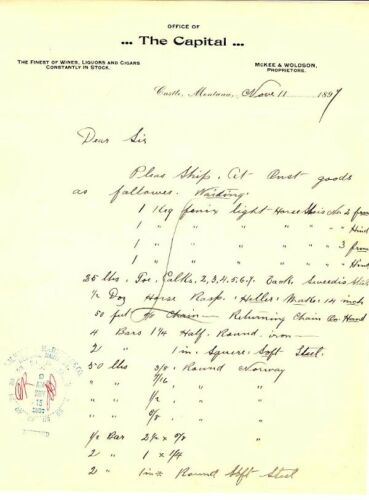 OFFICE OF
... The Capital ...
THE FINEST OF WINES, LIQUORS AND CIGARS
CONSTANTLY IN STOCK.
MCKEE & WOLDSON,
PROPRIETORS.
Castle, Montana, Nove 11 1897
Dear Sir
Pleas Ship. At Onst goods
as fallowes. Waiting.
1 Keg fenix light Horse Shois No 2 front
1 " " " " " " " Hind
1 " " " " " " 3 front
1 " " " " " " " Hind
25 lbs. Toe. Calks. 2, 3, 4, 5, 6.
1/2 Doz Horse Rasp. Heller. Make. 14 inch
50 feet 3/8 Chain Chain Co. Hand
4 Bars 1 1/4 Half. Round. iron
2 " 1 in. Squere. Soft Steel.
50 lbs 3/8. Round Norway
" " 7/16 " "
" " 1/2 " "
" " 5/8 " "
1/2 Bar 2 1/2 x 7/8 "
2 " 1 x 1/4 "
2 " 1 in Round Soft Steel